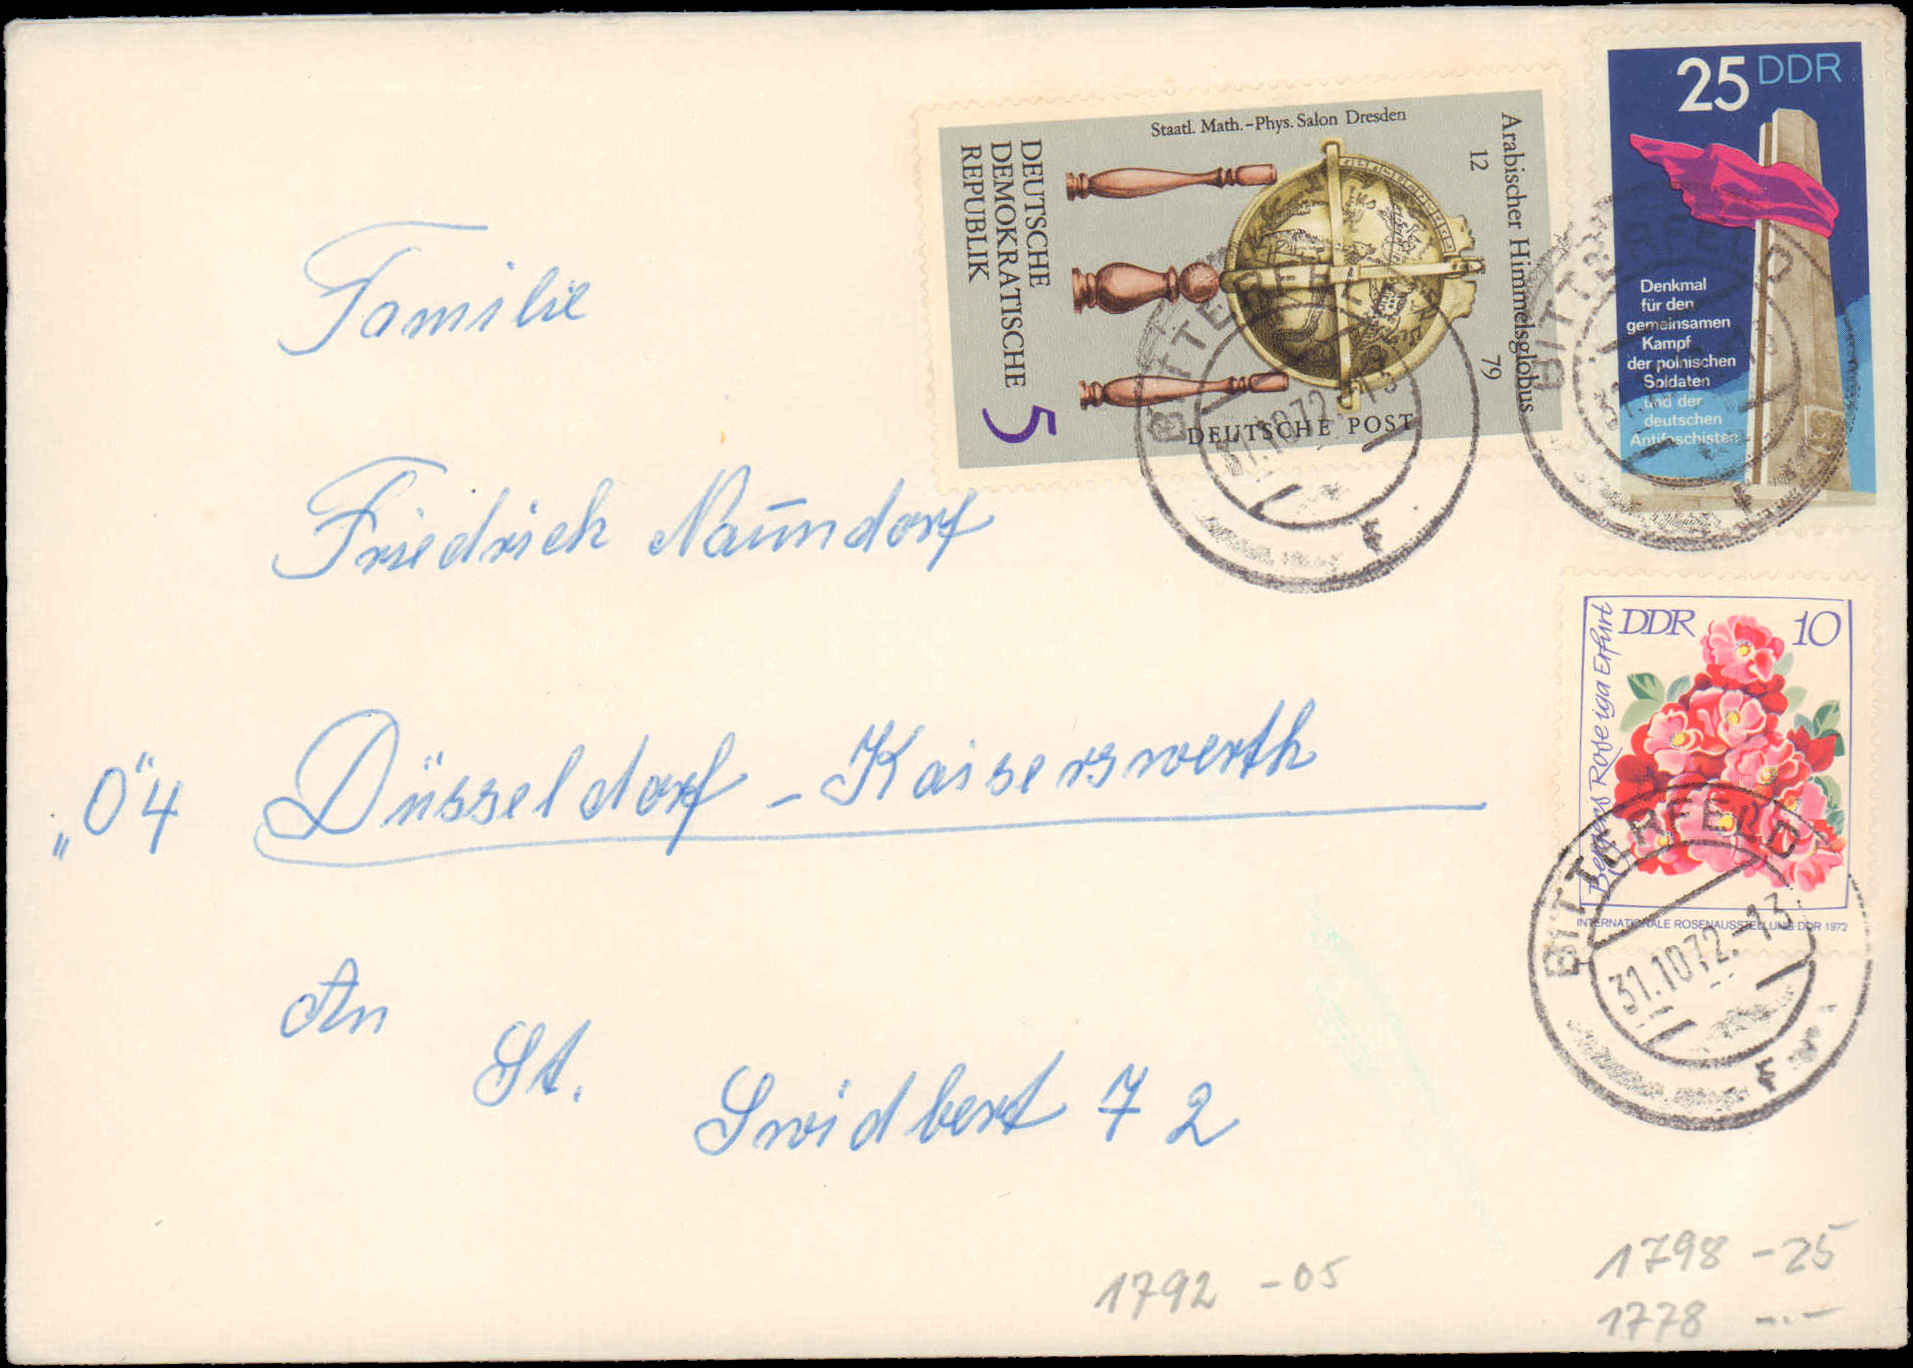 Staatl. Math.-Phys. Salon Dresden
Arabischer Himmelsglobus
12 79
DEUTSCHE
DEMOKRATISCHE
REPUBLIK
5
DEUTSCHE POST
25 DDR
Denkmal
für den
gemeinsamen
Kampf
der polnischen
Soldaten
und der
deutschen
Antifaschisten
BITTERFELD
31.10.72.-13
BITTERFELD
DDR 10
Bergers Rose iga Erfurt
INTERNATIONALE ROSENAUSSTELLUNG DDR 1972
BITTERFELD 1
31.10.72.-13
Familie
Friedrich Naundorf
„Ö"4 Düsseldorf - Kaiserswerth
An
St.
Swidbert 72
1792 -05
1798 -25
1778 -.-